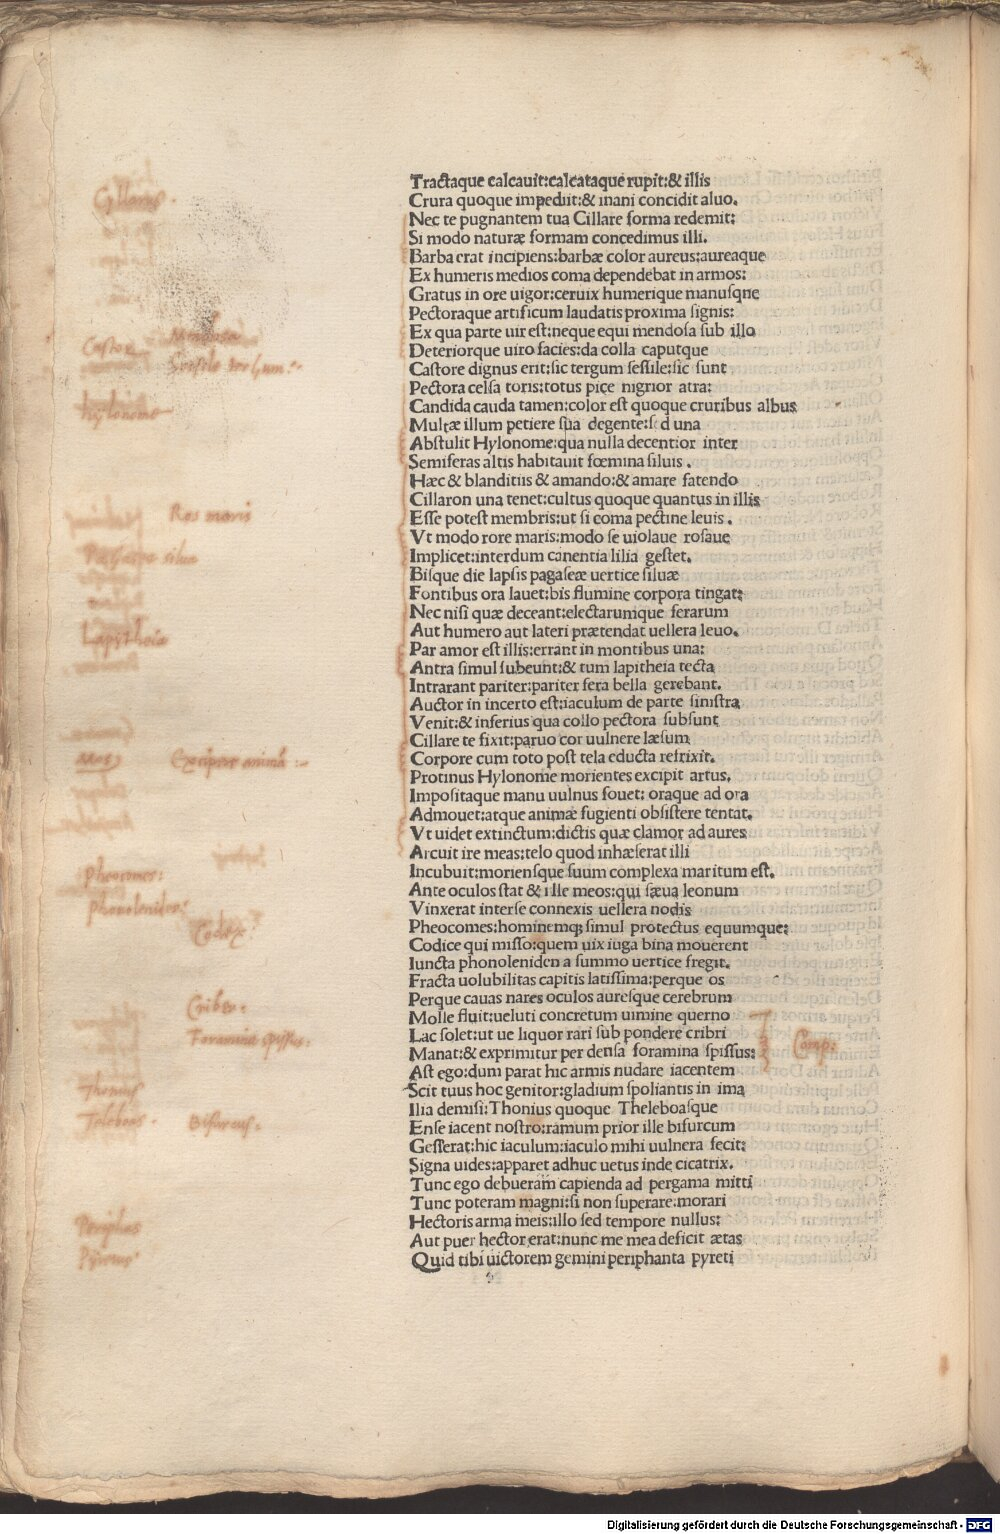 Tractaque calcauit:calcataque rupit:& illis
Crura quoque impediit:& inani concidit aluo.
Nec te pugnantem tua Cillare forma redemit:
Si modo naturæ formam concedimus illi.
Barba erat incipiens:barbæ color aureus:aureaque
Ex humeris medios coma dependebat in armos:
Gratus in ore uigor:ceruix humerique manusqne
Pectoraque artificum laudatis proxima signis:
Ex qua parte uir est:neque equi mendosa sub illo
Deteriorque uiro facies:da colla caputque
Castore dignus erit:sic tergum sessile:sic sunt
Pectora celsa toris:totus pice nigrior atra:
Candida cauda tamen:color est quoque cruribus albus
Multæ illum petiere sua degente:sed una
Abstulit Hylonome:qua nulla decentior inter
Semiferas altis habitauit fœmina siluis.
Hæc & blanditiis & amando:& amare fatendo
Cillaron una tenet:cultus quoque quantus in illis
Esse potest membris:ut si coma pectine leuis.
Vt modo rore maris:modo se uiolaue rosaue
Implicet:interdum canentia lilia gestet.
Bisque die lapsis pagaseæ uertice siluæ
Fontibus ora lauet:bis flumine corpora tingat:
Nec nisi quæ deceant:electarumque ferarum
Aut humero aut lateri prætendat uellera leuo.
Par amor est illis:errant in montibus una:
Antra simul subeunt:& tum lapitheia tecta
Intrarant pariter:pariter fera bella gerebant.
Auctor in incerto est:iaculum de parte sinistra
Venit:& inferius qua collo pectora subsunt
Cillare te fixit:paruo cor uulnere læsum
Corpore cum toto post tela educta refrixit.
Protinus Hylonome morientes excipit artus.
Impositaque manu uulnus fouet: oraque ad ora
Admouet:atque animæ fugienti obsistere tentat.
Vt uidet extinctum:dictis quæ clamor ad aures
Arcuit ire meas:telo quod inhæserat illi
Incubuit:moriensque suum complexa maritum est.
Ante oculos stat & ille meos:qui sæua leonum
Vinxerat interse connexis uellera nodis
Pheocomes:hominemq; simul protectus equumque:
Codice qui misso:quem uix iuga bina mouerent
Iuncta phonoleniden a summo uertice fregit.
Fracta uolubilitas capitis latissima:perque os
Perque cauas nares oculos auresque cerebrum
Molle fluit:ueluti concretum uimine querno
Lac solet:ut ue liquor rari sub pondere cribri
Manat:& exprimitur per densa foramina spissus:
Ast ego:dum parat hic armis nudare iacentem
Scit tuus hoc genitor:gladium spoliantis in ima
Ilia demisi:Thonius quoque Theleboasque
Ense iacent nostro:ramum prior ille bifurcum
Gesserat:hic iaculum:iaculo mihi uulnera fecit:
Signa uides:apparet adhuc uetus inde cicatrix.
Tunc ego debueram capienda ad pergama mitti
Tunc poteram magni:si non superare:morari
Hectoris arma meis:illo sed tempore nullus:
Aut puer hector erat:nunc me mea deficit ætas
Quid tibi uictorem gemini periphanta pyreti
Cyllarus.
Castor
hylonome
Ros maris
Pagaseae silue
Lapitheia
Mos
Excipere animā :~
pheocomes:
phonolenides:
Codex:
Cribrū.
Foramina spissus.
Comp:
Thonius
Teleboas.
Bifurcus.
Periphas
Pyretus
Digitalisierung gefördert durch die Deutsche Forschungsgemeinschaft - DFG